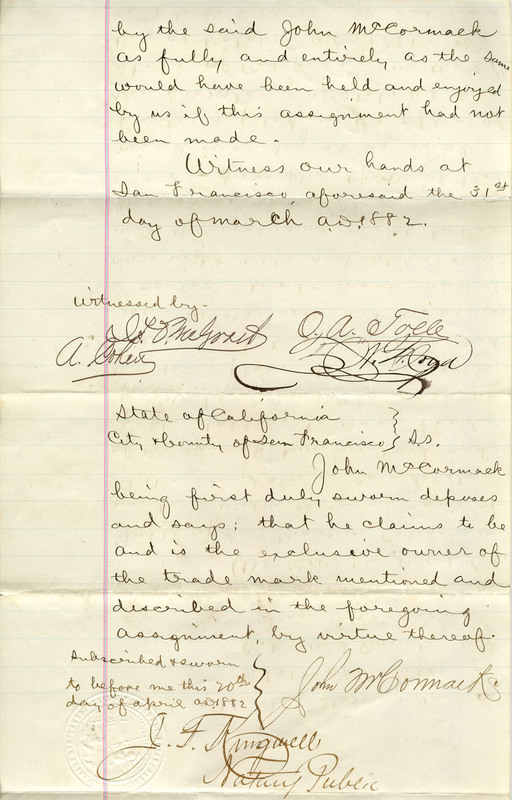 by the said John McCormack
as fully and entirely as the same
would have been held and enjoyed
by us if this assignment had not
been made.
Witness our hands at
San Francisco, aforesaid the 31st
day of march A.D. 1882.
Witnessed by-
O. A. Tolle
A. Cohen
State of California
City & County of San Francisco } S.s.
John McCormack
being first duly sworn deposes
and says; that he claims to be
and is the exclusive owner of
the trade mark mentioned and
described in the foregoing
assignment, by virtue thereof.
Subscribed & sworn
to before me this 20th
day of april AD 1882
John McCormack
J. F. Kingwell
Notary Public